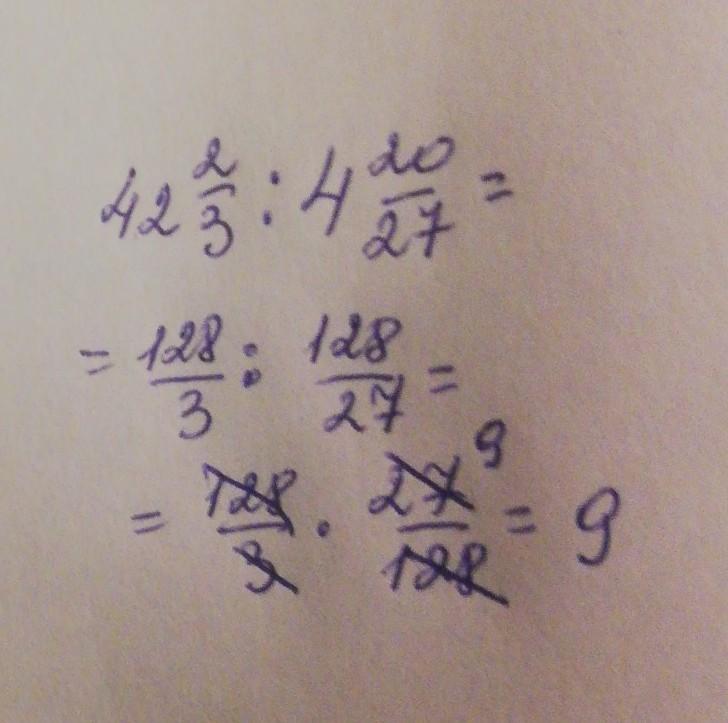 42 2/3 : 4 20/27 =
= 128/3 : 128/27 =
= 128/3 · 27/128 9 = 9